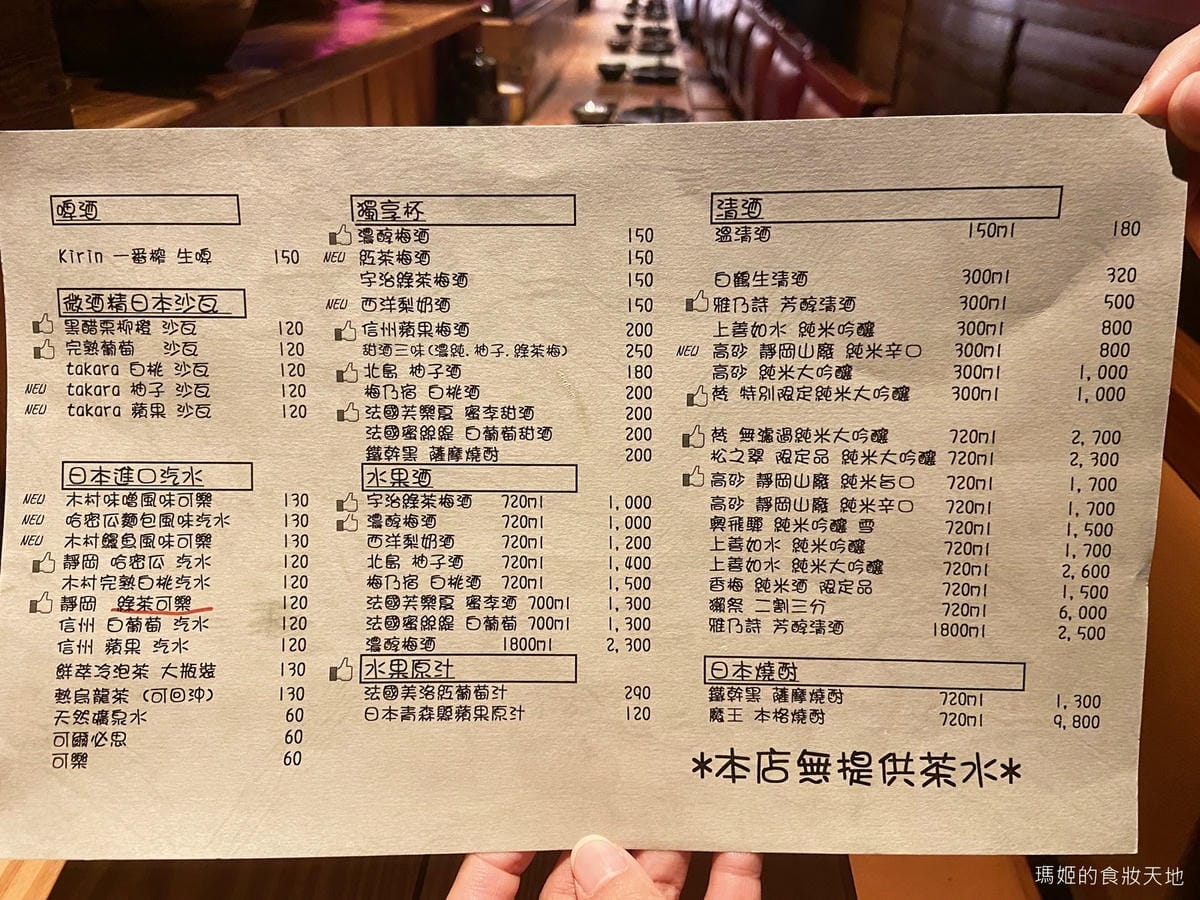 啤酒
Kirin 一番榨 生啤 150
微酒精日本沙瓦
黑醋栗柳橙 沙瓦 120
完熟葡萄 沙瓦 120
takara 白桃 沙瓦 120
NEW takara 柚子 沙瓦 120
NEW takara 蘋果 沙瓦 120
日本進口汽水
NEW 木村味噌風味可樂 130
NEW 哈密瓜麵包風味汽水 130
NEW 木村鰻魚風味可樂 130
靜岡 哈密瓜 汽水 120
木村完熟白桃汽水 120
靜岡 綠茶可樂 120
信州 白葡萄 汽水 120
信州 蘋果 汽水 120
鮮萃冷泡茶 大瓶裝 130
熱烏龍茶 (可回沖) 130
天然礦泉水 60
可爾必思 60
可樂 60
獨享杯
濃醇梅酒 150
NEW 紅茶梅酒 150
宇治綠茶梅酒 150
NEW 西洋梨奶酒 150
信州蘋果梅酒 200
甜酒三味(濃純.柚子.綠茶梅) 250
北島 柚子酒 180
梅乃宿 白桃酒 200
法國芙樂夏 蜜李甜酒 200
法國蜜絲緹 白葡萄甜酒 200
鐵幹黑 薩摩燒酎 200
水果酒
宇治綠茶梅酒 720ml 1,000
濃醇梅酒 720ml 1,000
西洋梨奶酒 720ml 1,200
北島 柚子酒 720ml 1,400
梅乃宿 白桃酒 720ml 1,500
法國芙樂夏 蜜李酒 700ml 1,300
法國蜜絲緹 白葡萄 700ml 1,300
濃醇梅酒 1800ml 2,300
水果原汁
法國美洛紅葡萄汁 290
日本青森縣蘋果原汁 120
清酒
溫清酒 150ml 180
白鶴生清酒 300ml 320
雅乃詩 芳醇清酒 300ml 500
上善如水 純米吟釀 300ml 800
NEW 高砂 靜岡山廢 純米辛口 300ml 800
高砂 純米大吟釀 300ml 1,000
特別限定純米大吟釀 300ml 1,000
無濾過純米大吟釀 720ml 2,700
松之翠 限定品 純米大吟釀 720ml 2,300
高砂 靜岡山廢 純米旨口 720ml 1,700
高砂 靜岡山廢 純米辛口 720ml 1,700
興飛驒 純米吟釀 雪 720ml 1,500
上善如水 純米吟釀 720ml 1,700
上善如水 純米大吟釀 720ml 2,600
香梅 純米酒 限定品 720ml 1,500
獺祭 二割三分 720ml 6,000
雅乃詩 芳醇清酒 1800ml 2,500
日本燒酎
鐵幹黑 薩摩燒酎 720ml 1,300
魔王 本格燒酎 720ml 9,800
*本店無提供茶水*
瑪姬的食妝天地